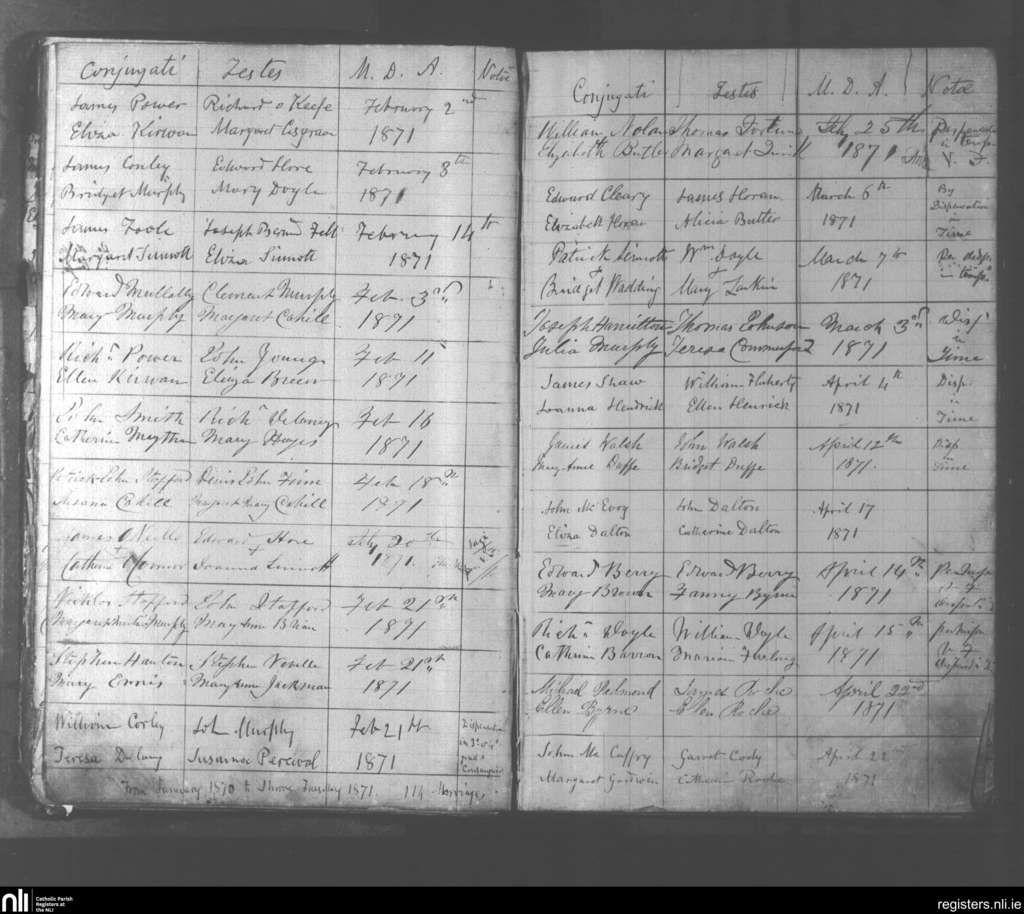 Conjugati Testes M. D. A. Notæ
James Power Richard o Keefe February 2nd
Eliza Kirwan Margaret 1871
James Conley Edward Hore February 8th
Bridget Murphy Mary Doyle 1871
James Toole Joseph February 14th
Margaret Sinnott Eliza Sinnott 1871
Edward Mullally Clement Murphy Feb. 3rd
Mary Murphy Margaret Cahill 1871
Richd Power John Young Feb 11
Ellen Kirwan Eliza Breen 1871
John Smith Richd Delaney Feb 16
Catherine Mary Hayes 1871
Patrick John Stafford Denis John Feb 18th
Susana Cahill Margaret Mary Cahill 1871
James Edward Hore 20th
Catherine O'Connor Joanna Sinnott 1871
Nicholas Stafford John Stafford Feb 21st
Murphy Mary Ann 1871
Stephen Stephen Neville Feb 21st
Mary Ennis Mary Ann Jackman 1871
William Corly Joh Murphy Feb 21st Dispensatio
in 3o et 4o
Teresa Delany Susanna Percival 1871
From January 1870 to Shrove Tuesday 1871. 114 Marriages
Conjugati Testes M. D. A. Notæ
William Nolan Thomas Feby 25th
Elizabeth Butler Margaret Quirk 1871
Edward Cleary James Horan March 6th By
Dispensation
in
Elizabeth Horan Alicia Butler 1871 Time
Patrick Sinnott Wm Doyle March 7th Per disp.
in temp.
Bridget Wadding Mary Larkin 1871
Joseph Hamilton Thomas Johnson March 3rd Disp
in
Julia Murphy Teresa Commerford 1871 Time
James Shaw William Fluherty April 4th Disp.
in
Joanna Hendrick Ellen Henrick 1871 Time
Walsh John Walsh April 12th Disp
in
Mary Anne Duffe Bridget Duffe 1871. Time
John McEvoy John Dalton April 17
Eliza Dalton Catherine Dalton 1871
Edward Berry Edward Berry April 14th
Mary Brown Fanny Byrne 1871
Richd Doyle William Doyle April 15th
Catherine Barron Marian Furlong 1871
Michael Redmond James Roche April 22nd
Ellen Byrne Ellen Roche 1871
John Mc Caffry Garret Cody April 22
Margaret Goodwin Catherine Roche 1871
nli Catholic Parish
Registers at
the NLI
registers.nli.ie